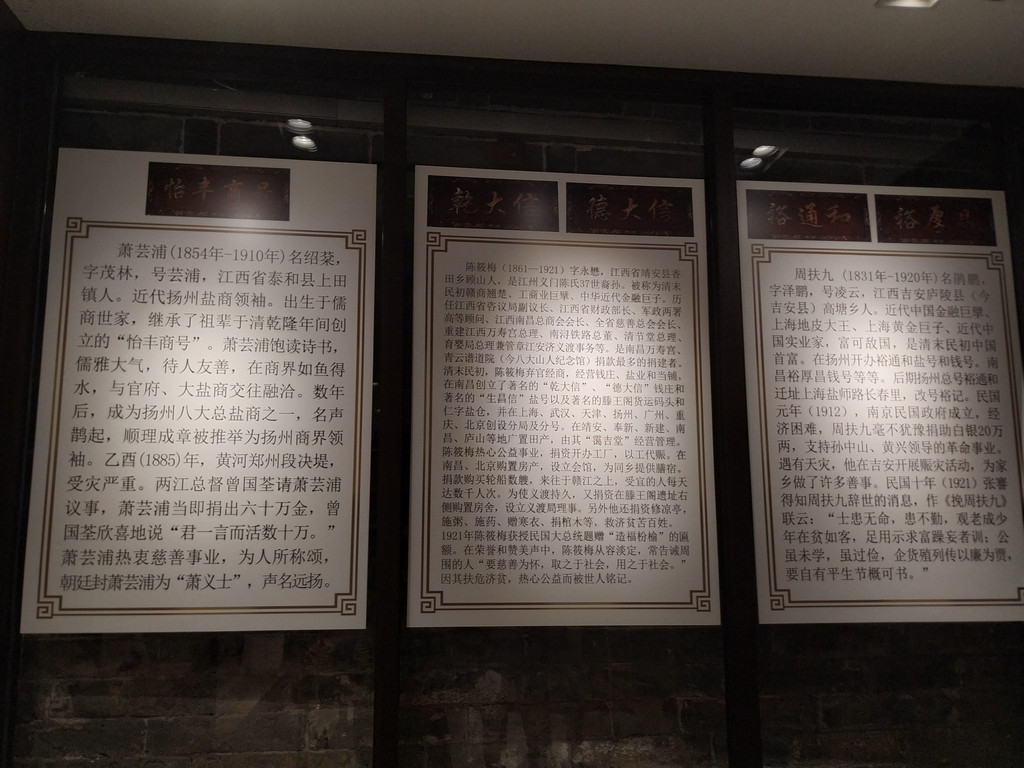 怡丰商号
萧芸浦(1854年-1910年)名绍棻,
字茂林，号芸浦，江西省泰和县上田
镇人。近代扬州盐商领袖。出生于儒
商世家，继承了祖辈于清乾隆年间创
立的“怡丰商号”。萧芸浦饱读诗书，
儒雅大气，待人友善，在商界如鱼得
水，与官府、大盐商交往融洽。数年
后，成为扬州八大总盐商之一，名声
鹊起，顺理成章被推举为扬州商界领
袖。乙酉(1885)年，黄河郑州段决堤，
受灾严重。两江总督曾国荃请萧芸浦
议事，萧芸浦当即捐出六十万金，曾
国荃欣喜地说“君一言而活数十万。”
萧芸浦热衷慈善事业，为人所称颂，
朝廷封萧芸浦为“萧义士”，声名远扬。
乾大信
德大信
陈筱梅（1861—1921）字永懋，江西省靖安县香
田乡顾山人，是江州义门陈氏37世裔孙。被称为清末
民初赣商翘楚、工商业巨擘、中华近代金融巨子。历
任江西省咨议局副议长、江西省财政部长、军政两署
高等顾问、江西南昌总商会会长、全省慈善总会会长、
重建江西万寿宫总理、南浔铁路总董、清节堂总理、
育婴局总理兼管章江安济义渡事务等。是南昌万寿宫、
青云谱道院（今八大山人纪念馆）捐款最多的捐建者。
清末民初，陈筱梅弃官经商，经营钱庄、盐业和当铺，
在南昌创立了著名的“乾大信”、“德大信”钱庄和
著名的“生昌信”盐号以及著名的滕王阁货运码头和
仁字盐仓，并在上海、武汉、天津、扬州、广州、重
庆、北京创设分局及分号。在靖安、奉新、新建、南
昌、庐山等地广置田产，由其“蔼吉堂”经营管理。
陈筱梅热心公益事业，捐资开办工厂，以工代赈。在
南昌、北京购置房产，设立会馆，为同乡提供膳宿。
捐款购买轮船数艘，来往于赣江之上，受宜的人每天
达数千人次。为使义渡持久，又捐资在滕王阁遗址右
侧购置房舍，设立义渡局理事。另外他还捐资修凉亭，
施粥、施药、赠寒衣、捐棺木等，救济贫苦百姓。
1921年陈筱梅获授民国大总统题赠“造福枌榆”的匾
额。在荣誉和赞美声中，陈筱梅从容淡定，常告诫周
围的人“要慈善为怀，取之于社会，用之于社会。”
因其扶危济贫，热心公益而被世人铭记。
裕通和
裕厚昌
周扶九（1831年-1920年)名鹍鹏，
字泽鹏，号凌云，江西吉安庐陵县（今
吉安县）高塘乡人。近代中国金融巨擘、
上海地皮大王、上海黄金巨子、近代中
国实业家，富可敌国，是清末民初中国
首富。在扬州开办裕通和盐号和钱号。南
昌裕厚昌钱号等等。后期扬州总号裕通和
迁址上海盐师路长春里，改号裕记。民国
元年（1912），南京民国政府成立，经
济困难，周扶九毫不犹豫捐助白银20万
两，支持孙中山、黄兴领导的革命事业。
遇有天灾，他在吉安开展赈灾活动，为家
乡做了许多善事。民国十年（1921）张謇
得知周扶九辞世的消息，作《挽周扶九》
联云：“士患无命，患不勤，观老成少
年在贫如客，足用示求富躁妄者训；公
虽未学，虽过俭，企货殖列传以廉为贾，
要自有平生节概可书。”